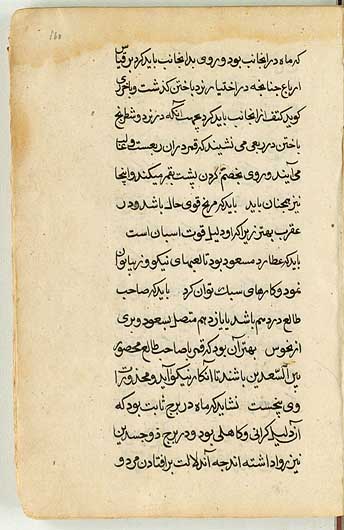 که ماه در انجانب بود و روی بدانجانب باید کرد بس قیاس
ارباع جنانجه در اختیار نرد باختن کذشت و باخری
کوید کتف از انجانب باید کرد بجهت انکه در نرد و شطرنج
باختن در ربعی می نشیند که قمر در ان ربعست و غالب
می آیند و روی بخصم کردن پشت بقمر میکند و اینجا
نیز همجنان باید باید که مریخ قوی حال باشد و در
عقرب بهتر زیرا که او دلیل قوت اسبان است
باید که عطارد مسعود بود تا لعبهای نیکو و زیبا توان
نمود و کارهای سبک توان کرد باید که صاحب
طالع در دهم باشد یا یازدهم متصل بسعود و بری
از نحوس بهتر آن بود که قمر یا صاحب طالع محصور
بین السعدین باشند تا آن کار نیکو آید و محذورات
وی نشاید که ماه در برج ثابت بود که
آن دلیل کرانی و کاهلی بود و در برج ذوجسدین
نیز روا داشته اند جه آن دلالت بر افتادن مرد و